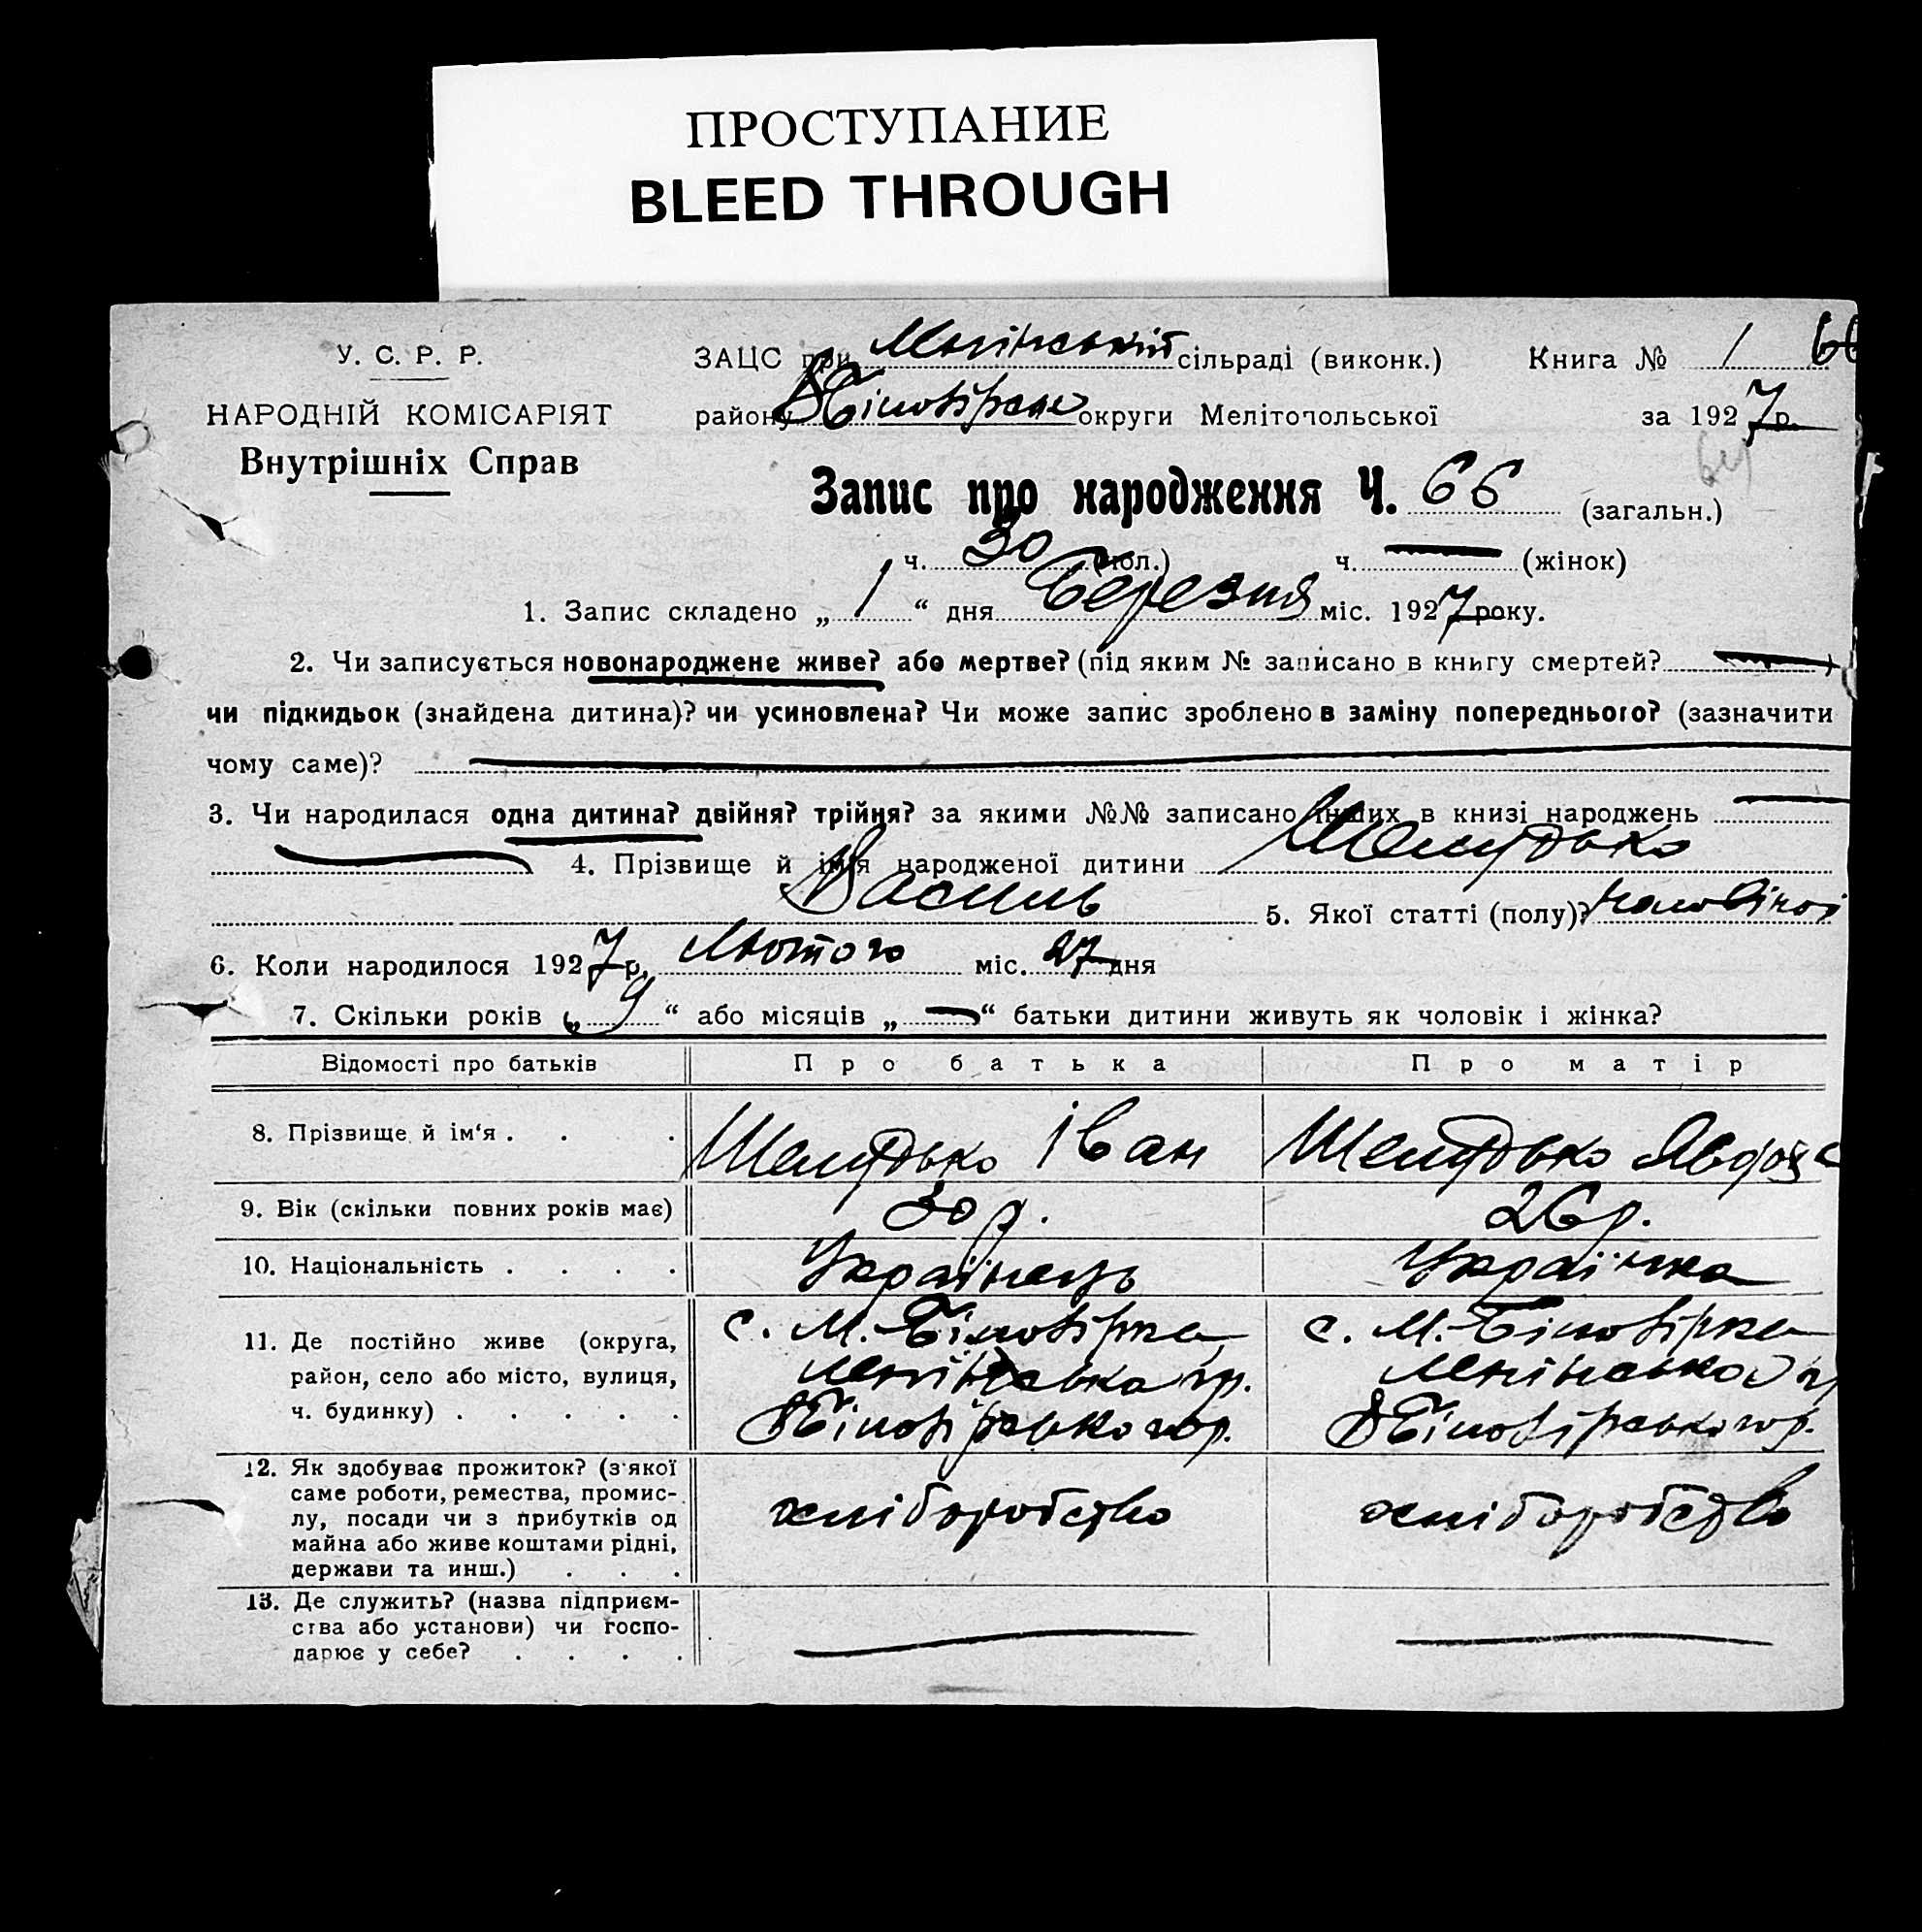 ПРОСТУПАНИЕ
BLEED THROUGH
У. С. Р. Р.
НАРОДНІЙ КОМІСАРІЯТ
Внутрішніх Справ
ЗАЦС при Ленінській сільраді (виконк.) Книга № 1 66
району В Білозірськ округи Мелітопольської за 1927 р.
Запис про народження Ч. 66 (загальн.)
ч. 30 (чол.) ч. — (жінок)
1. Запис складено „ 1 “ дня Березня міс. 1927 року.
2. Чи записується новонароджене живе? або мертве? (під яким № записано в книгу смертей? — )
чи підкидьок (знайдена дитина)? чи усиновлена? Чи може запис зроблено в заміну попереднього? (зазначити
чому саме)?
3. Чи народилася одна дитина? двійня? трійня? за якими №№ записано інших в книзі народжень —
4. Прізвище й ім'я народженої дитини Шелудько
Василь 5. Якої статті (полу)? чоловічої
6. Коли народилося 1927 р. Лютого міс. 27 дня
7. Скільки років „ 9 “ або місяців „ — “ батьки дитини живуть як чоловік і жінка?
Відомості про батьків Про батька Про матір
8. Прізвище й ім'я . . . Шелудько Іван Шелудько
9. Вік (скільки повних років має) 30 р. 26 р.
10. Національність . . . . Українець Українка
11. Де постійно живе (округа, с. М.-Білозірка с. М.-Білозірка
район, село або місто, вулиця, Ленінська Ленінсько
ч. будинку) . . . . . В Білозірського р. В Білозірського р.
12. Як здобуває прожиток? (з якої
саме роботи, ремества, промис-
лу, посади чи з прибутків од хліборобство хліборобство
майна або живе коштами рідні,
держави та инш.) . . .
13. Де служить? (назва підприєм-
ства або установи) чи госпо-
дарює у себе? . . . . — —